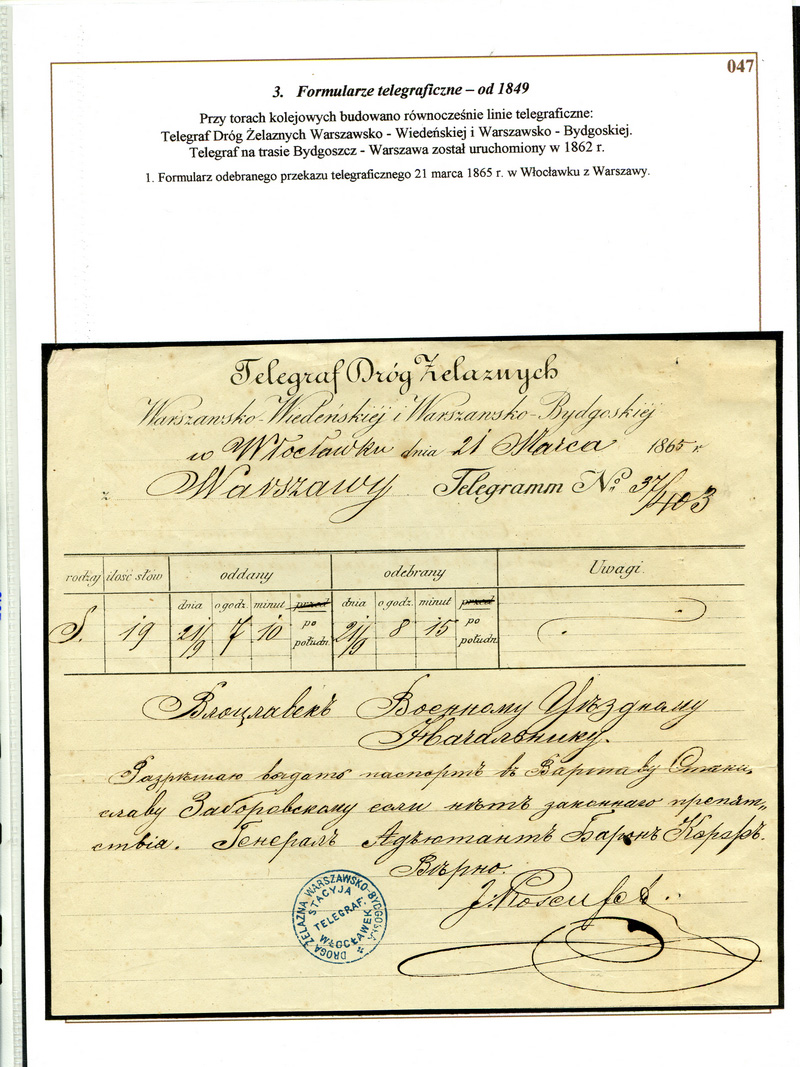 047
3. Formularze telegraficzne – od 1849
Przy torach kolejowych budowano równocześnie linie telegraficzne:
Telegraf Dróg Żelaznych Warszawsko - Wiedeńskiej i Warszawsko - Bydgoskiej.
Telegraf na trasie Bydgoszcz - Warszawa został uruchomiony w 1862 r.
1. Formularz odebranego przekazu telegraficznego 21 marca 1865 r. w Włocławku z Warszawy.
Telegraf Dróg Żelaznych
Warszawsko-Wiedeńskiéj i Warszawsko-Bydgoskiéj
w Włocławku dnia 21 Marca 1865 r.
z Warszawy Telegramm No. 37/403
rodzaj ilość słów oddany odebrany Uwagi
dnia o godz. minut przed po połudn. dnia o godz. minut przed po połudn.
S. 19 21/9 7 10 21/9 8 15
Влоцлавекъ Военному Уѣздному
Начальнику.
Разрѣшаю выдать паспортъ въ Варшаву Стани-
славу Заборовскому если нѣтъ законнаго препят-
ствія. Генералъ Адъютантъ Баронъ Корфъ.
Вѣрно.
DROGA ŻELAZNA WARSZAWSKO-BYDGOSKA
STACYJA
TELEGRAF.
WŁOCŁAWEK